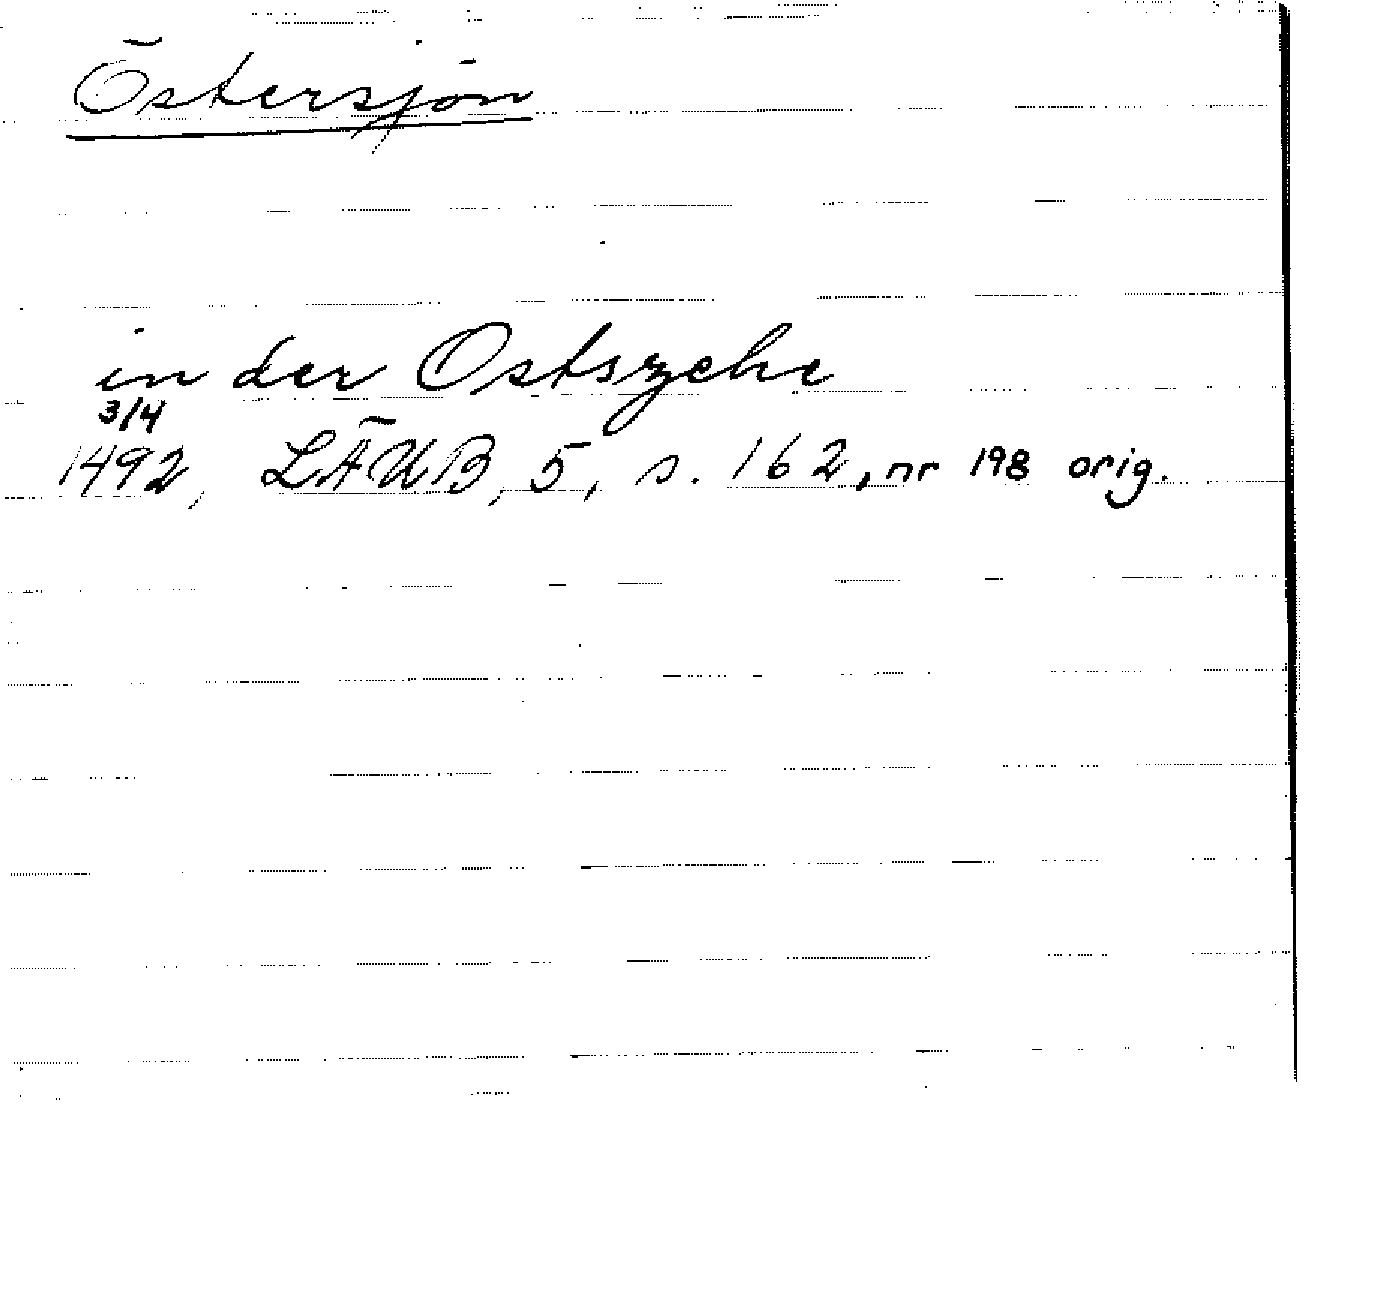 Östersjön
in der Ostszehe
3/4
1492, LÄUB, 5, s. 162, nr 198 orig.